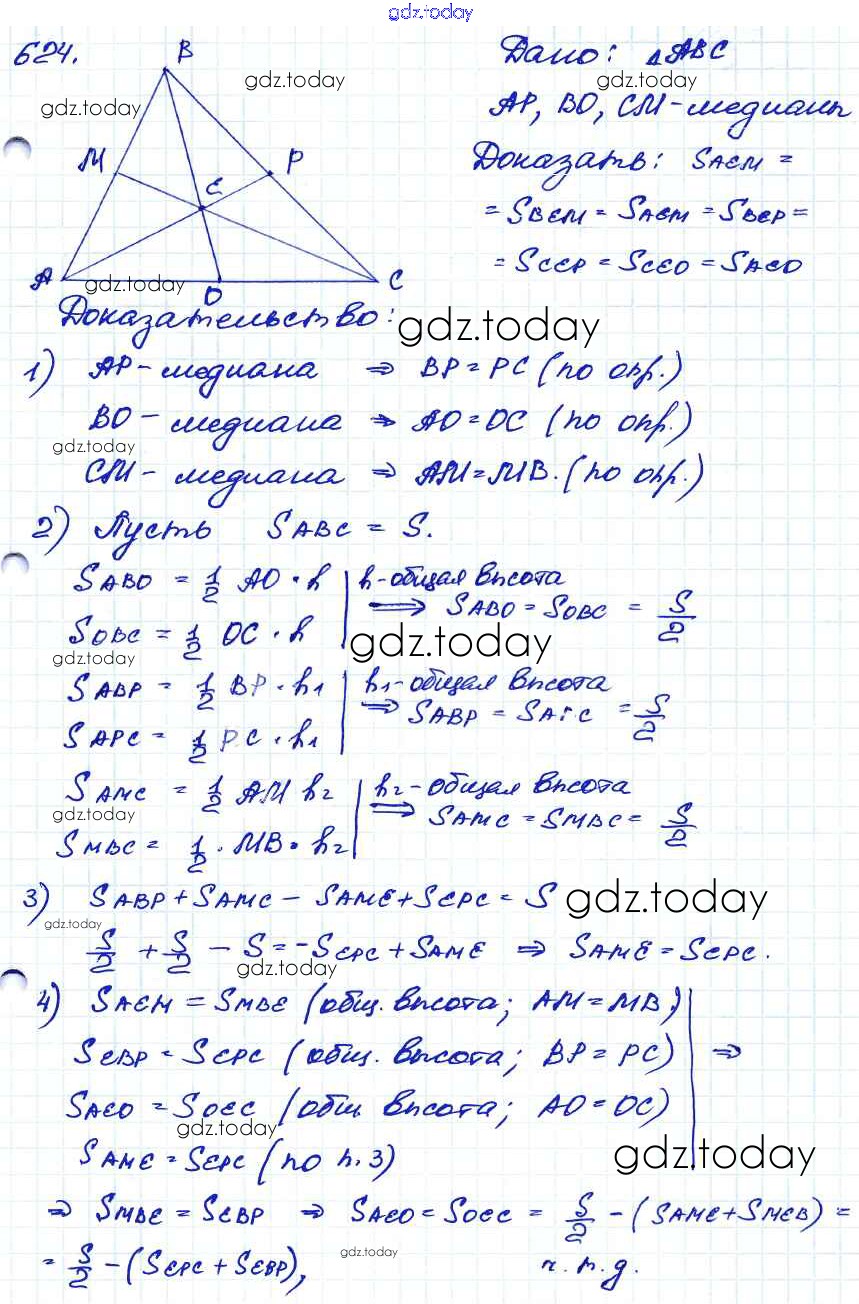 gdz.today
624.
B
Дано: △ABC
gdz.today
gdz.today
gdz.today
AP, BO, CM - медианы
M
P
E
Доказать: SAEM =
= SBEM = SAEM = SBEP =
= SCEP = SCEO = SAEO
A
gdz.today
O
C
Доказательство:
gdz.today
1) AP - медиана ⇒ BP = PC (по опр.)
BO - медиана ⇒ AO = OC (по опр.)
gdz.today
CM - медиана ⇒ AM = MB. (по опр.)
2) Пусть SABC = S.
SABO = 1/2 AO · h | h - общая высота
⇒ SABO = SOBC = S/2
SOBC = 1/2 OC · h
gdz.today
gdz.today
SABP = 1/2 BP · h1 | h1 - общая высота
⇒ SABP = SAPC = S/2
SAPC = 1/2 PC · h1
SAMC = 1/2 AM h2 | h2 - общая высота
gdz.today
⇒ SAMC = SMBC = S/2
SMBC = 1/2 · MB · h2
3) SABP + SAMC - SAME + SEPC = S
gdz.today
gdz.today
S/2 + S/2 - S = -SEPC + SAME ⇒ SAME = SEPC.
gdz.today
4) SAEM = SMBE (общ. высота; AM = MB)
SEBP = SEPC (общ. высота; BP = PC) ⇒
SAEO = SOEC (общ высота; AO = OC)
gdz.today
SAME = SEPC (по п. 3)
gdz.today
⇒ SMBE = SEBP ⇒ SAEO = SOEC = S/2 - (SAME + SMEB) =
= S/2 - (SEPC + SEBP),
gdz.today
ч.т.д.